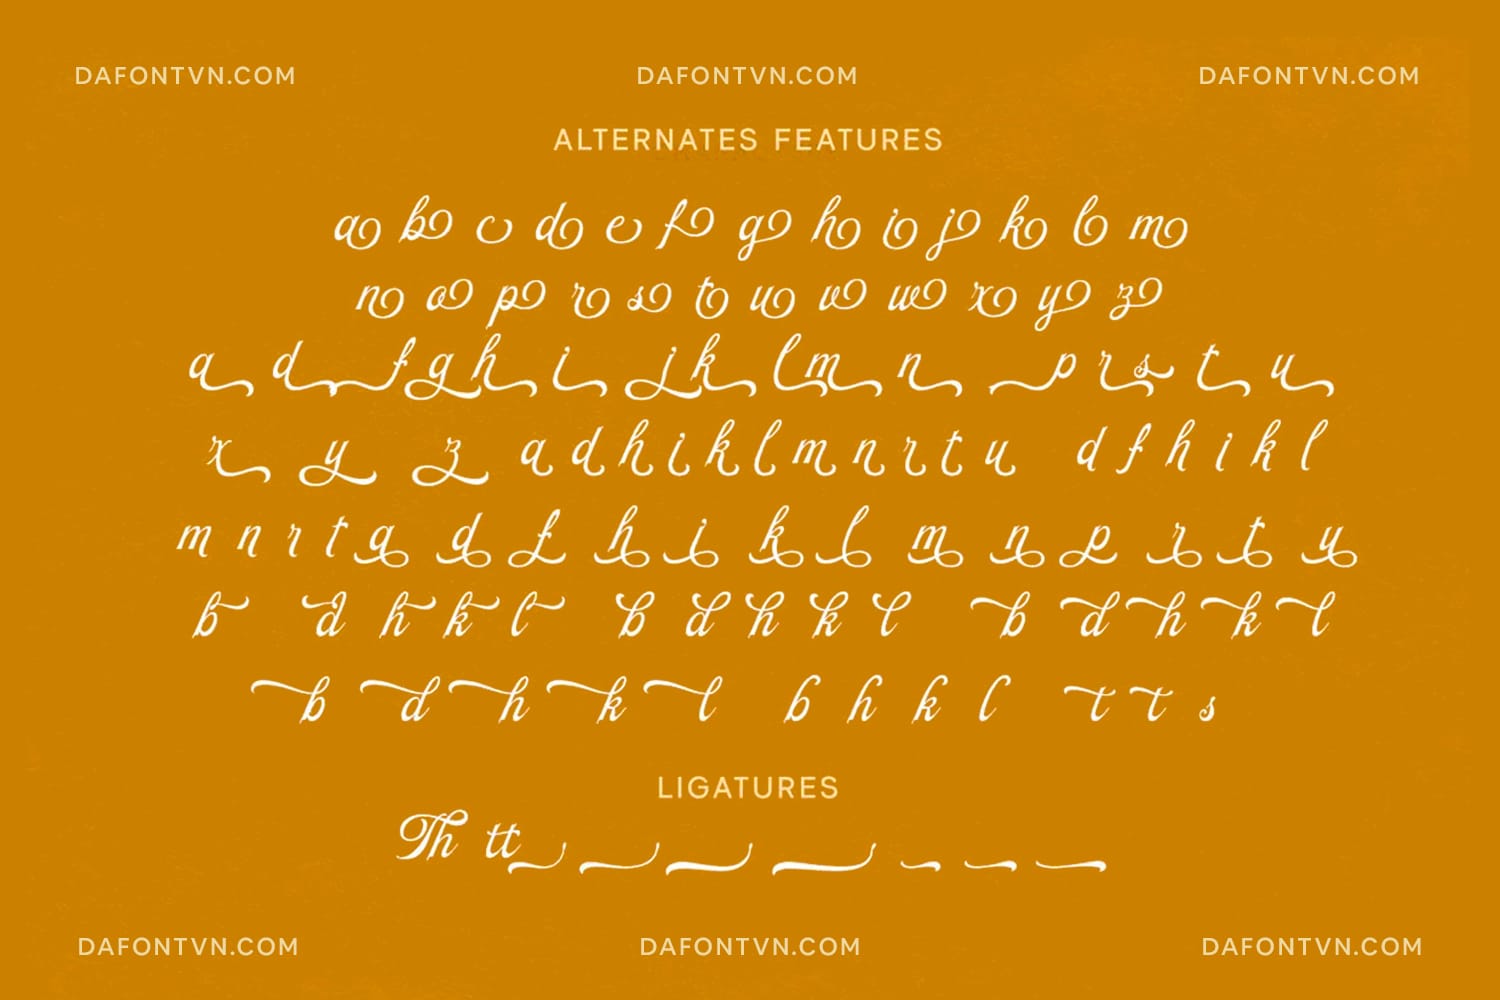 DAFONTVN.COM DAFONTVN.COM DAFONTVN.COM
ALTERNATES FEATURES
a b c d e f g h i j k l m
n o p r s t u v w x y z
a d f g h i j k l m n p r s t u
x y z a d h i k l m n r t u d f h i k l
m n r t a d f h i k l m n p r t u
b d h k l b d h k l b d h k l
b d h k l b h k l t t s
LIGATURES
Th tt
DAFONTVN.COM DAFONTVN.COM DAFONTVN.COM